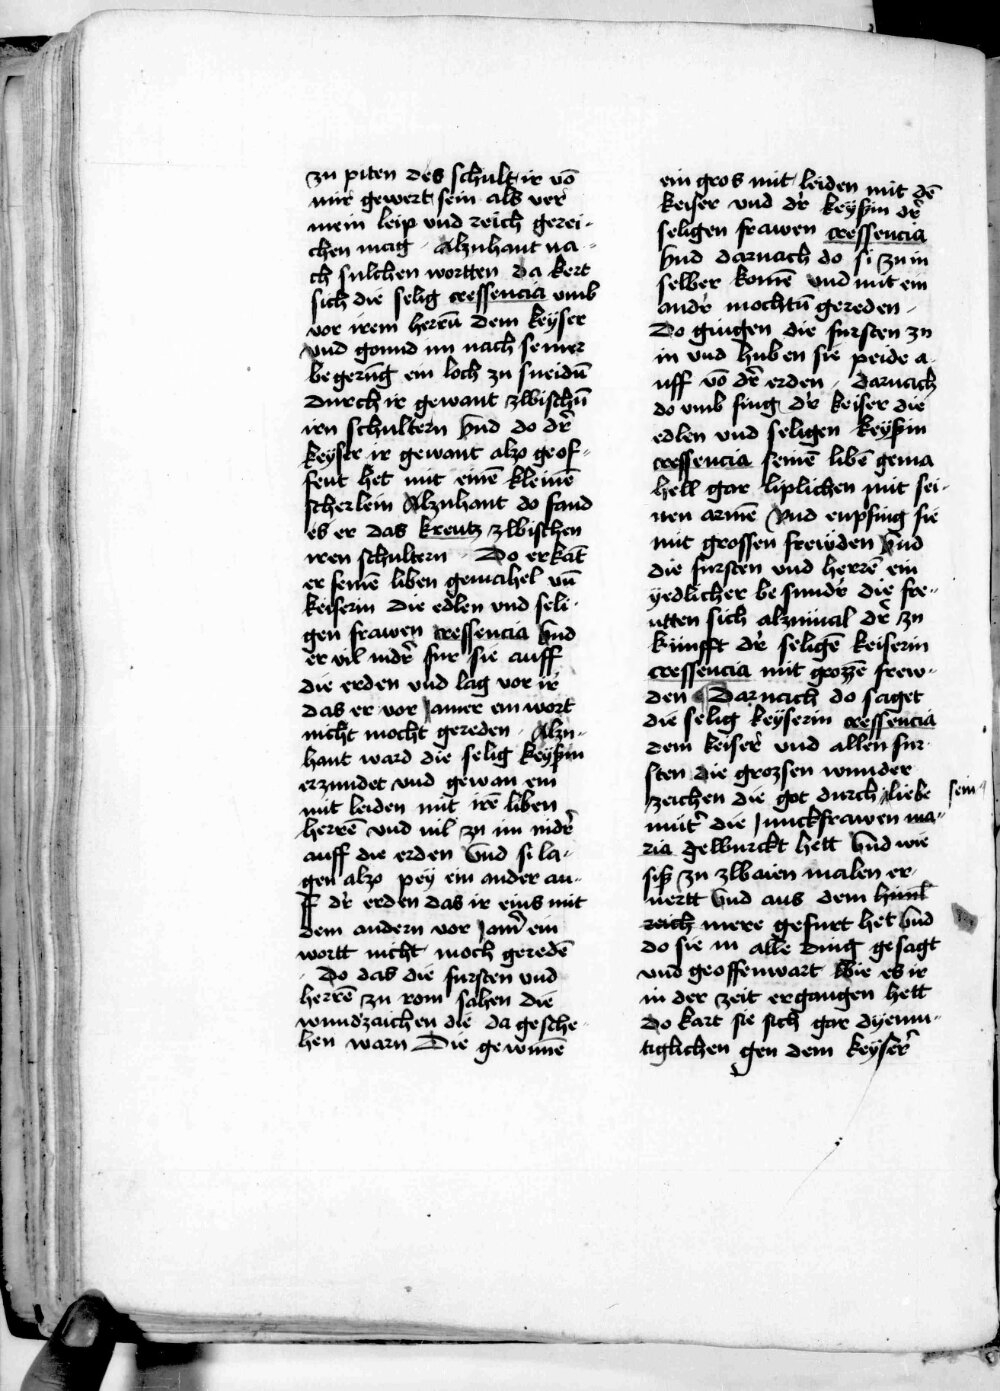 zu piten des schult ir vō
mir gewert sein als ver
mein leip vnd reich gerei-
chen mag · Alzuhant na-
ch sulchen wortten da kert
sich die selig cressencia vmb
vor irem herrū dem keyser
vnd gonnd im nach seiner
begerūg ein loch zu sneidū
durch ir gewant zwischū
iren schultern Vnd do dr̄
keyser ir gewant alzo geof-
fent het mit einē kleinē
scherlein Alzuhant do fand
es er das kreutz zwischen
iren schultern · Do erkāt
er seinē liben gemahel vn̄
keiserin die edlen vnd seli-
gen frawen cressencia Vnd
er vil nidr̄ fur sie auff
die erden vnd lag vor ir
das er vor Jamer ein wort
nicht mocht gereden · Alzu-
hant ward die selig keyßin
erzundet vnd gewan ein
mit leiden mit irē liben
herrē vnd vil zu im nidr̄
auff die erden Vnd si la-
gen alzo pey ein ander au-
ff dr̄ erden das ir eins mit
dem andern vor Jam̄ ein
wortt nicht moch geredē
· Do das die fursten vnd
herrē zu rom sahen die
wundzaichen die da gesche-
hen warn Die gewinnē
ein gros mit leiden mit dē
keiser vnd dr̄ keyßin dr̄
seligen frawen cressencia
Vnd darnach do si zu in
selber komē vnd mit ein
andr̄ mochtū gereden ·
Do gingen die fursten zu
in vnd huben sie peide a-
uff vō dr̄ erden · darnach
do vmb fing dr̄ keiser die
edlen vnd seligen keyßin
cressencia seinē libē gema
hell gar liplichen mit sei-
nen armē Vnd enpfing sie
mit grossen frewden Vnd
die fursten vnd herrē ein
yedlicher besundr̄ die fre-
utten sich alzumal dr̄ zu
kunfft dr̄ seligē keiserin
cressencia mit grozzē frew-
den Darnach do saget
die selig keyserin cressencia
dem keiser̄ vnd allen fur-
sten die grozsen wunder
zeichen die got durch liebe sein
mūt̄ die Junckfrawen ma-
ria gewurckt hett Vnd wie
siß zu zwaien malen er-
nertt Vnd aus dem himl
reich mere gefurt het Vnd
do sie in alle ding gesagt
vnd geoffenwart Wie es ir
in der zeit ergangen hett
Do kart sie sich gar dyemu-
tiglichen gen dem keyser̄